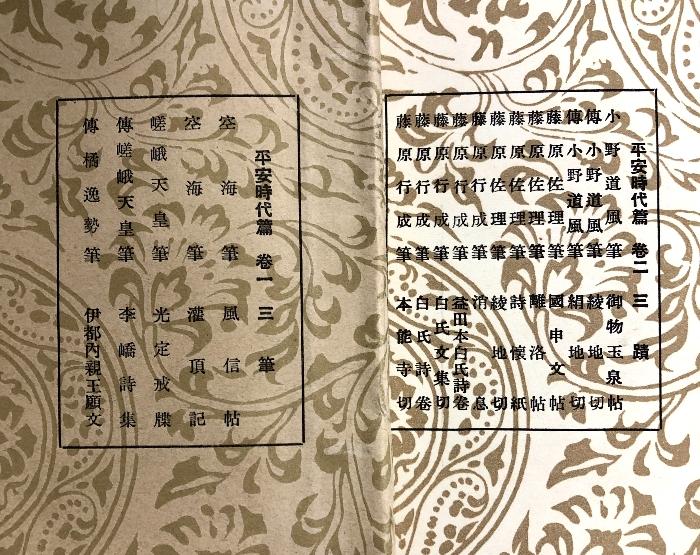 平安時代篇 卷二 三蹟
小野道風筆 御物玉泉帖
傳小野道風筆 綾地切
傳小野道風筆 絹地切
藤原佐理筆 國申文帖
藤原佐理筆 離洛帖
藤原佐理筆 詩懷紙
藤原佐理筆 綾地切
藤原行成筆 消息
藤原行成筆 益田本白氏詩卷
藤原行成筆 白氏文集切
藤原行成筆 白氏詩卷
藤原行成筆 本能寺切
平安時代篇 卷一 三筆
空海筆 風信帖
空海筆 灌頂記
嵯峨天皇筆 光定戒牒
傳嵯峨天皇筆 李嶠詩集
傳橘逸勢筆 伊都內親王願文